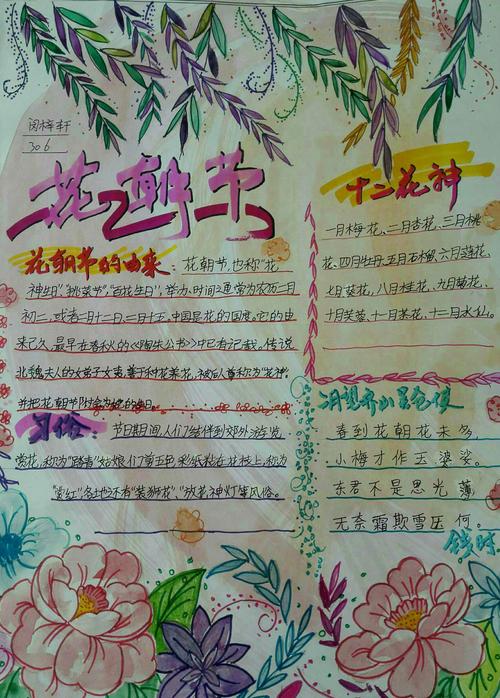 闵梓轩
306
花朝节
花朝节的由来:花朝节,也称“花
神生日”“挑菜节”,“百花生日”,举办时间通常为农历二月
初二,或者二月十二、二月十五。中国是花的国度。它的由
来已久,最早在春秋的《陶朱公书》中已有记载。传说
北魏夫人的女弟子女夷,善于种花养花,被后人尊称为“花神”,
并把花朝节附会为她的节日。
习俗:节日期间,人们结伴到郊外游览
赏花,称为“踏青”,姑娘们剪五色彩纸粘在花枝上,称为
“赏红”。各地还有“装狮花”、“放花神灯”等风俗。
十二花神
一月梅花、二月杏花、三月桃
花、四月牡丹、五月石榴、六月莲花、
七月葵花、八月桂花、九月菊花、
十月芙蓉、十一月茶花、十二月水仙。
春到花朝花未多,
小梅才作玉婆娑。
东君不是思光薄,
无奈霜欺雪压何。
钱时